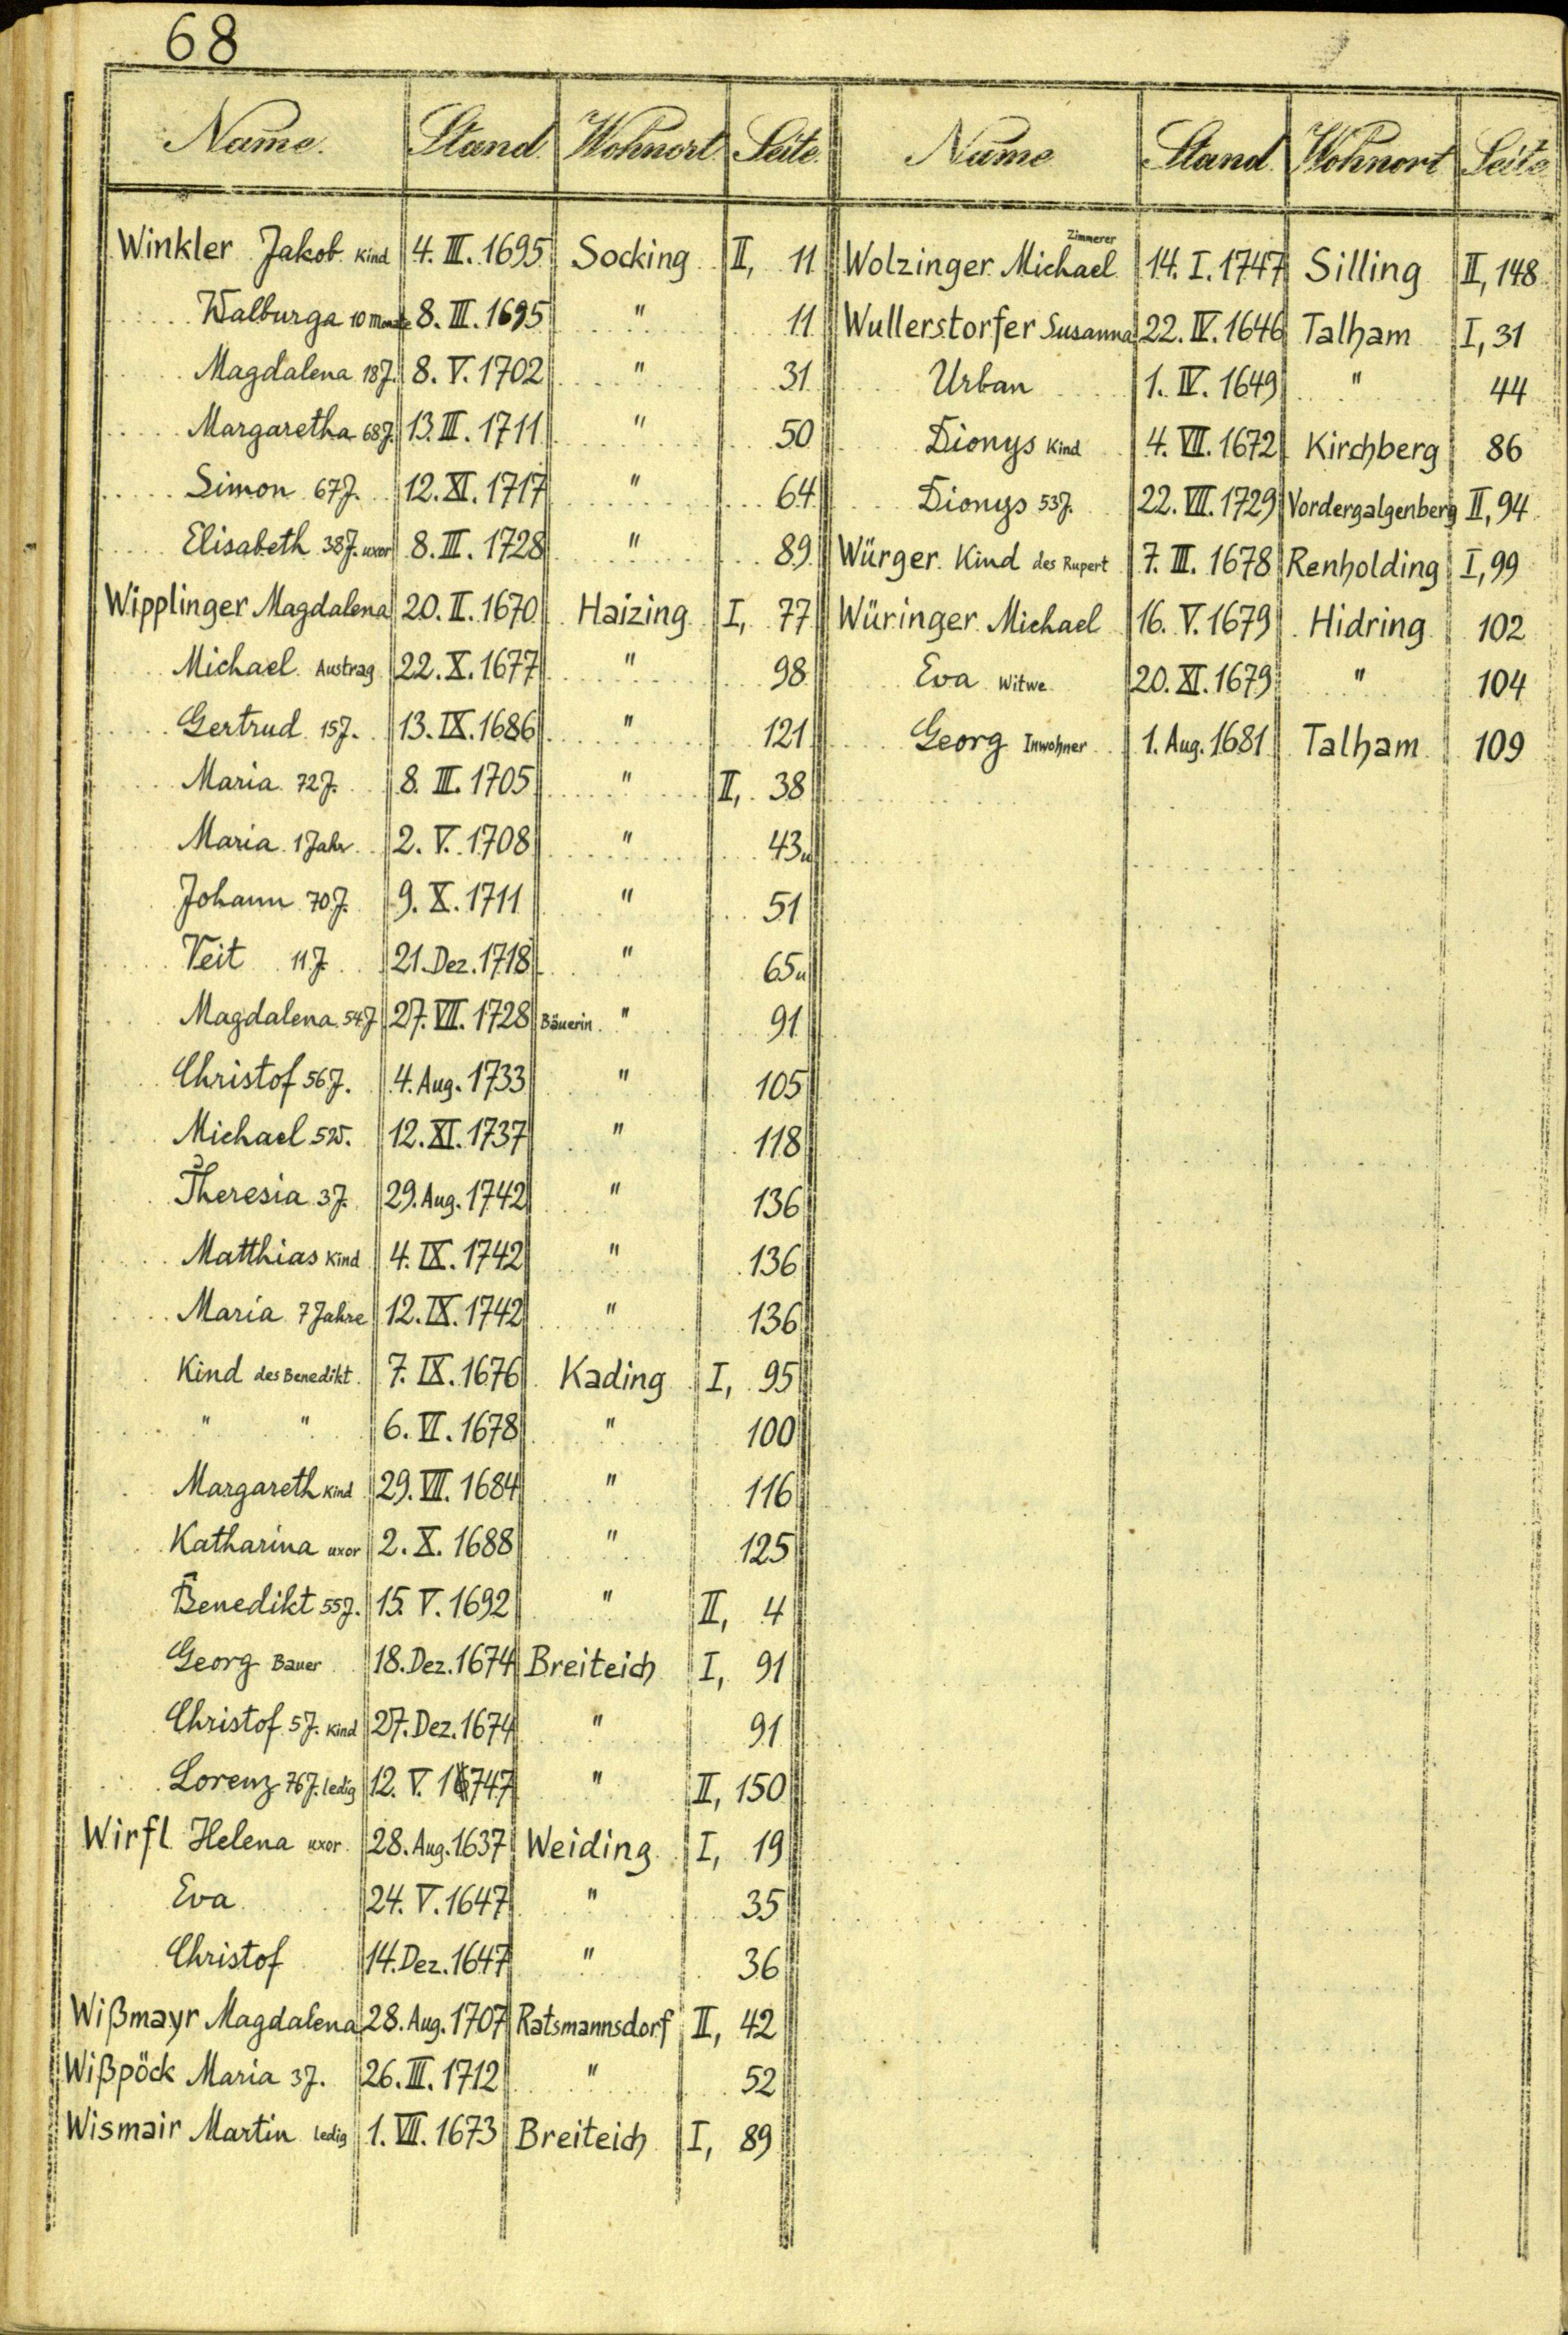 68
Name. Stand. Wohnort. Seite.
Winkler Jakob Kind 4. III. 1695 Socking II, 11
Walburga 10 Monate 8. III. 1695 " 11
Magdalena 18J. 8. V. 1702 " 31
Margaretha 68J. 13. III. 1711 " 50
Simon 67J. 12. XI. 1717 " 64
Elisabeth 38J. uxor 8. III. 1728 " 89
Wipplinger Magdalena 20. II. 1670 Haizing I, 77
Michael Austrag 22. X. 1677 " 98
Gertrud 15J. 13. IX. 1686 " 121
Maria 72J. 8. III. 1705 " II, 38
Maria 1 Jahr 2. V. 1708 " 43u
Johann 70J. 9. X. 1711 " 51
Veit 11J. 21. Dez. 1718 " 65u
Magdalena 54J 27. VII. 1728 Bäuerin " 91
Christof 56J. 4. Aug. 1733 " 105
Michael 5W. 12. XI. 1737 " 118
Theresia 3J. 29. Aug. 1742 " 136
Matthias Kind 4. IX. 1742 " 136
Maria 7 Jahre 12. IX. 1742 " 136
Kind des Benedikt 7. IX. 1676 Kading I, 95
" " 6. VI. 1678 " 100
Margareth Kind 29. VII. 1684 " 116
Katharina uxor 2. X. 1688 " 125
Benedikt 55J. 15. V. 1692 " II, 4
Georg Bauer 18. Dez. 1674 Breiteich I, 91
Christof 5J. Kind 27. Dez. 1674 " 91
Lorenz 76J. ledig 12. V. 1747 " II, 150
Wirfl Helena uxor 28. Aug. 1637 Weiding I, 19
Eva 24. V. 1647 " 35
Christof 14. Dez. 1647 " 36
Wißmayr Magdalena 28. Aug. 1707 Ratsmannsdorf II, 42
Wißpöck Maria 3J. 26. III. 1712 " 52
Wismair Martin ledig 1. VII. 1673 Breiteich I, 89
Name Stand. Wohnort Seite
Zimmerer
Wolzinger Michael 14. I. 1747 Silling II, 148
Wullerstorfer Susanna 22. IV. 1646 Talham I, 31
Urban 1. IV. 1649 " 44
Dionys Kind 4. VII. 1672 Kirchberg 86
Dionys 53J. 22. VII. 1729 Vordergalgenberg II, 94
Würger Kind des Rupert 7. III. 1678 Renholding I, 99
Würinger Michael 16. V. 1679 Hidring 102
Eva Witwe 20. XI. 1679 " 104
Georg Inwohner 1. Aug. 1681 Talham 109